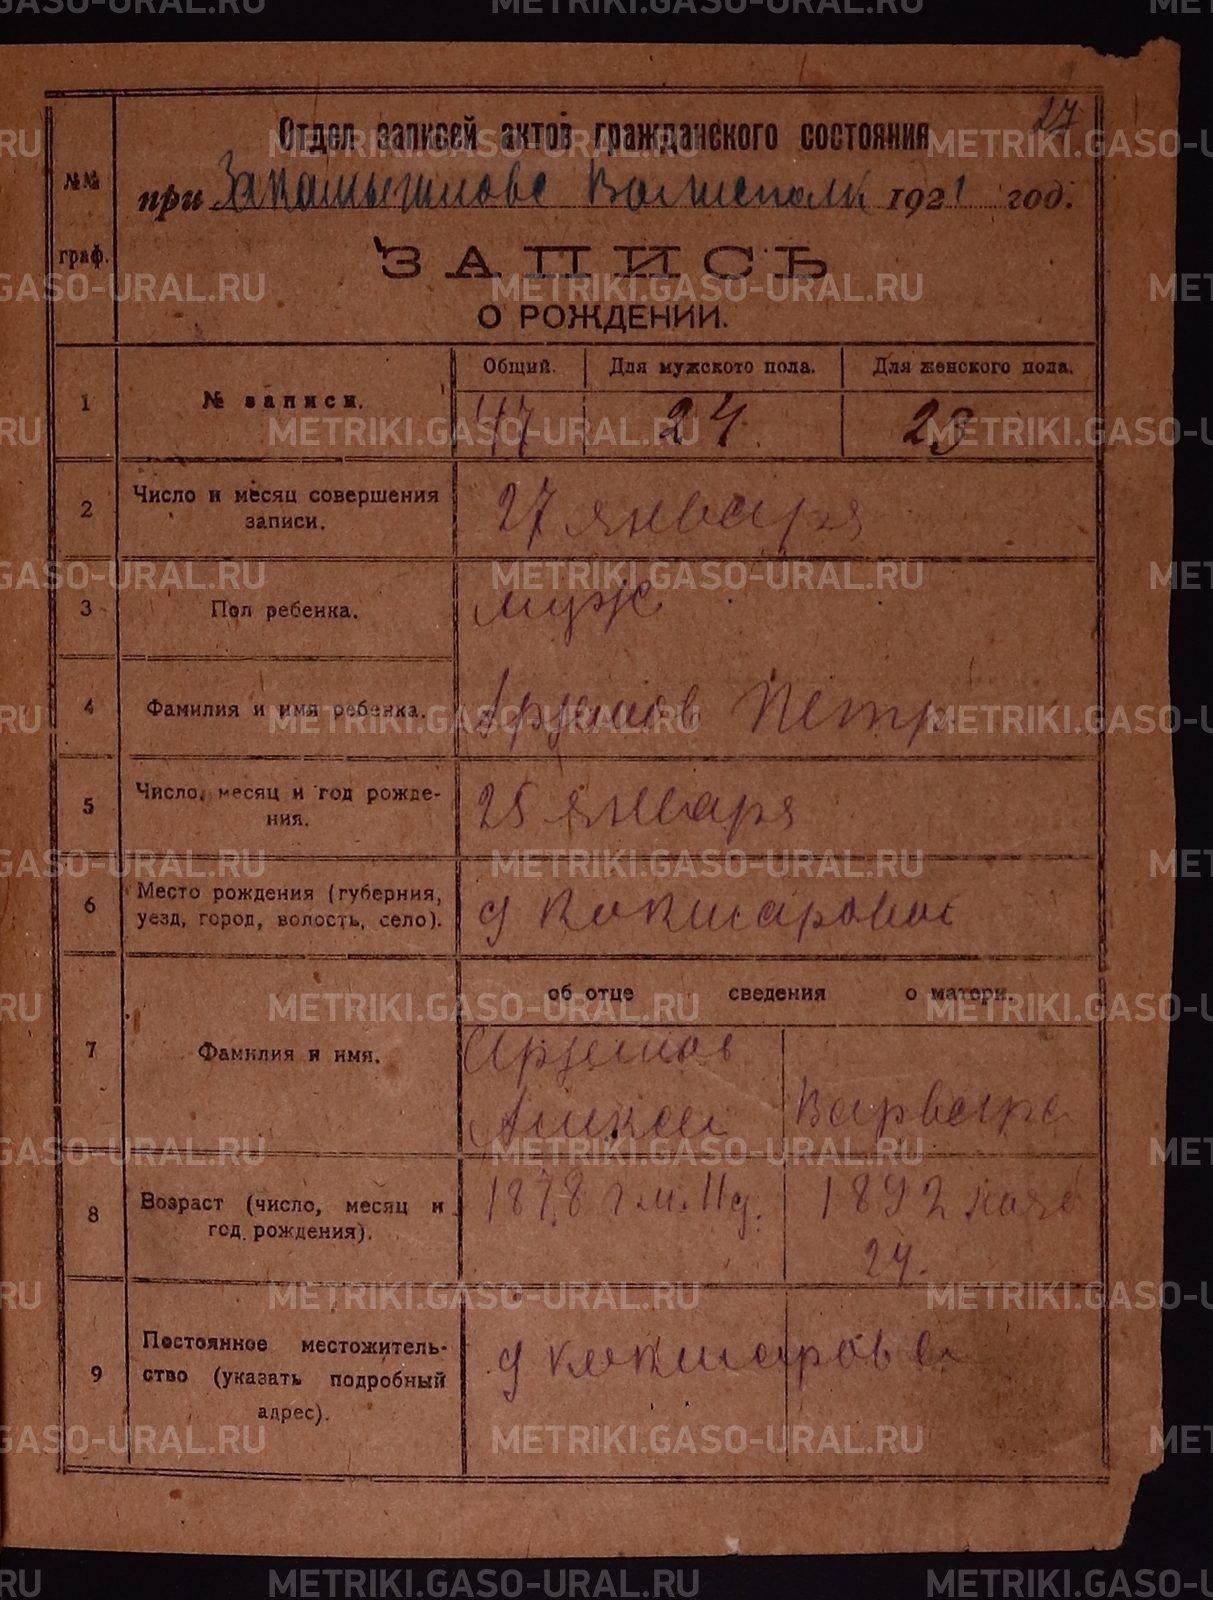 27
Отдел записей актов гражданского состояния
№№ граф.
при Закамышловс Волисполк 1921 год.
ЗАПИСЬ
О РОЖДЕНИИ.
Общий. Для мужского пола. Для женского пола.
1 № записи. 47 24. 23
2 Число и месяц совершения
записи. 27 января
3 Пол ребенка. муж
4 Фамилия и имя ребенка. Петр
5 Число, месяц и год рожде-
ния. 25 января
6 Место рождения (губерния,
уезд, город, волость, село). д Кокшаровой
об отце сведения о матери.
7 Фамилия и имя.
Варвара
8 Возраст (число, месяц и
год рождения). 1878 г м. 11 д. 1892
24.
9 Постоянное местожитель-
ство (указать подробный
адрес). д Кокшарова
METRIKI.GASO-URAL.RU